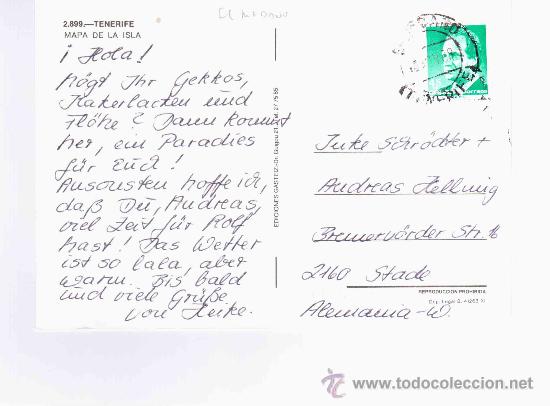 El Medano
2.899.—TENERIFE
MAPA DE LA ISLA
¡ Hola!
Mögt Ihr Gekkos,
Kakerlacken und
Flöhe? Dann kommt
her, ein Paradies
für Euch!
Ansonsten hoffe ich,
daß Du, Andreas,
viel Zeit für Rolf
hast! Das Wetter
ist so lala, aber
warm. Bis bald
und viele Grüße
von Heike.
EDICIONES GASTEIZ
Inke Schrödter +
Andreas Hellwig
Bremervörder Str. 16
2160 Stade
Alemania-W.
REPRODUCCION PROHIBIDA
correos
www.todocoleccion.net